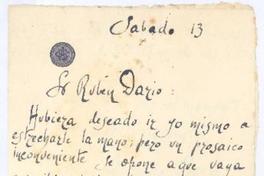 Sabado 13
Sr Rubén Darío:
Hubiera deseado ir yo mismo a
estrecharle la mano; pero un prosaico
inconveniente se opone a que vaya